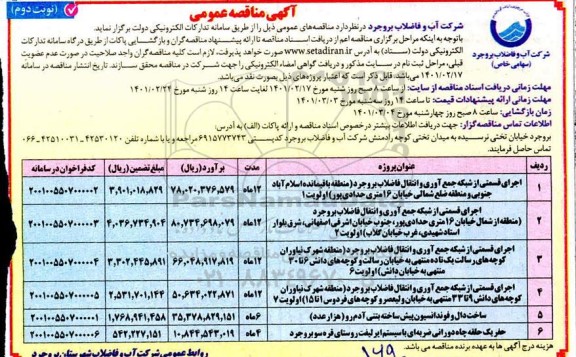 آگهی مناقصه عمومی
(نوبت دوم)
شرکت آب و فاضلاب بروجرد
(سهامی خاص)
شرکت آب و فاضلاب بروجرد در نظر دارد مناقصه‌های عمومی ذیل را از طریق سامانه تدارکات الکترونیکی دولت برگزار نماید.
باتوجه به اینکه مراحل برگزاری مناقصه اعم از دریافت اسناد مناقصه تا ارائه پیشنهاد مناقصه‌گران و بازگشایی پاکات از طریق درگاه سامانه تدارکات
الکترونیکی دولت (ستاد) به آدرس www.setadiran.ir صورت خواهد پذیرفت، لازم است کلیه مناقصه‌گران واجد صلاحیت در صورت عدم عضویت
قبلی، مراحل ثبت نام در سایت مذکور و دریافت گواهی امضاء الکترونیکی را جهت شرکت در مناقصه محقق سازند. تاریخ انتشار مناقصه در سامانه
۱۴۰۱/۰۲/۱۷ می‌باشد. قابل ذکر است که اعتبار پروژه‌های ذیل بصورت نقد می‌باشد.
مهلت زمانی دریافت اسناد مناقصه از سایت: از ساعت ۸ صبح روز شنبه مورخ ۱۴۰۱/۰۲/۱۷ لغایت ساعت ۱۴ روز شنبه مورخ ۱۴۰۱/۰۲/۲۴
مهلت زمانی ارائه پیشنهادات قیمت: تا ساعت ۱۴ روز سه‌شنبه مورخ ۱۴۰۱/۰۳/۰۳
زمان بازگشایی: ساعت ۸ صبح روز چهارشنبه مورخ ۱۴۰۱/۰۳/۰۴
اطلاعات تماس مناقصه‌گزار: جهت دریافت اطلاعات بیشتر درخصوص اسناد مناقصه و ارائه پاکات (الف) به آدرس:
بروجرد خیابان تختی نرسیده به میدان تختی کوچه رادمنش شرکت آب و فاضلاب بروجرد کدپستی ۶۹۱۵۷۷۳۷۴۳ مراجعه و یا با شماره تلفن ۴۲۵۳۰۱۲۰-۴۲۵۱۰۰۳۱-۰۶۶
تماس حاصل فرمایند.
ردیف عنوان پروژه مدت برآورد (ریال) مبلغ تضمین (ریال) کد فراخوان در سامانه
۱ اجرای قسمتی از شبکه جمع آوری و انتقال فاضلاب بروجرد (منطقه باقیمانده اسلام آباد
جنوبی و منطقه ضلع شمالی خیابان ۱۶ متری حدادی پور) اولویت ۱ ۱۲ماه ۷۸,۰۲۰,۳۷۶,۵۷۹ ۳,۹۰۱,۰۱۸,۸۲۹ ۲۰۰۱۰۰۵۵۰۷۰۰۰۰۰۲
۲ اجرای قسمتی از شبکه جمع آوری و انتقال فاضلاب بروجرد
(منطقه از شمال خیابان ۱۶ متری حدادی پور، جنوب خیابان اشرفی اصفهانی، شرق بلوار
استاد شهیدی، غرب خیابان گلاب) اولویت ۲ ۱۲ماه ۸۰,۷۳۴,۶۹۸,۰۷۹ ۴,۰۳۶,۷۳۴,۹۰۴ ۲۰۰۱۰۰۵۵۰۷۰۰۰۰۰۳
۳ اجرای قسمتی از شبکه جمع آوری و انتقال فاضلاب بروجرد (منطقه شهرک نیاوران
کوچه‌های رسالت یک تا ده منتهی به خیابان رسالت و کوچه‌های دانش ۶ تا ۳۰
منتهی به خیابان دانش) اولویت ۶ ۱۲ماه ۶۶,۰۴۸,۹۱۷,۸۱۹ ۳,۳۰۲,۴۴۵,۸۹۱ ۲۰۰۱۰۰۵۵۰۷۰۰۰۰۰۴
۴ اجرای قسمتی از شبکه جمع آوری و انتقال فاضلاب بروجرد (منطقه شهرک نیاوران
کوچه‌های دانش ۹ تا ۳۳ منتهی به خیابان ولیعصر و کوچه‌های فردوس ۱ تا ۱۵) اولویت ۷ ۱۲ماه ۵۰,۶۳۴,۰۲۲,۸۷۱ ۲,۵۳۱,۷۰۱,۱۴۴ ۲۰۰۱۰۰۵۵۰۷۰۰۰۰۰۵
۵ ساخت دال و فونداسیون پیش ساخته بتنی آدم رو (هزار عدد) ۶ماه ۳۵,۳۷۸,۸۲۹,۱۵۱ ۱,۷۶۸,۹۴۱,۴۵۸ ۲۰۰۱۰۰۵۵۰۷۰۰۰۰۰۱
۶ حفر یک حلقه چاه دورانی ضربه‌ای با سیستم ایرلیفت روستای قره‌سو بروجرد ۴ماه ۱۰,۸۴۴,۵۴۳,۰۱۹ ۵۴۲,۲۲۷,۱۵۱ ۲۰۰۱۰۰۵۵۰۷۰۰۰۰۰۶
هزینه درج آگهی ها به عهده برنده مناقصه می باشد.
روابط عمومی شرکت آب و فاضلاب شهرستان بروجرد